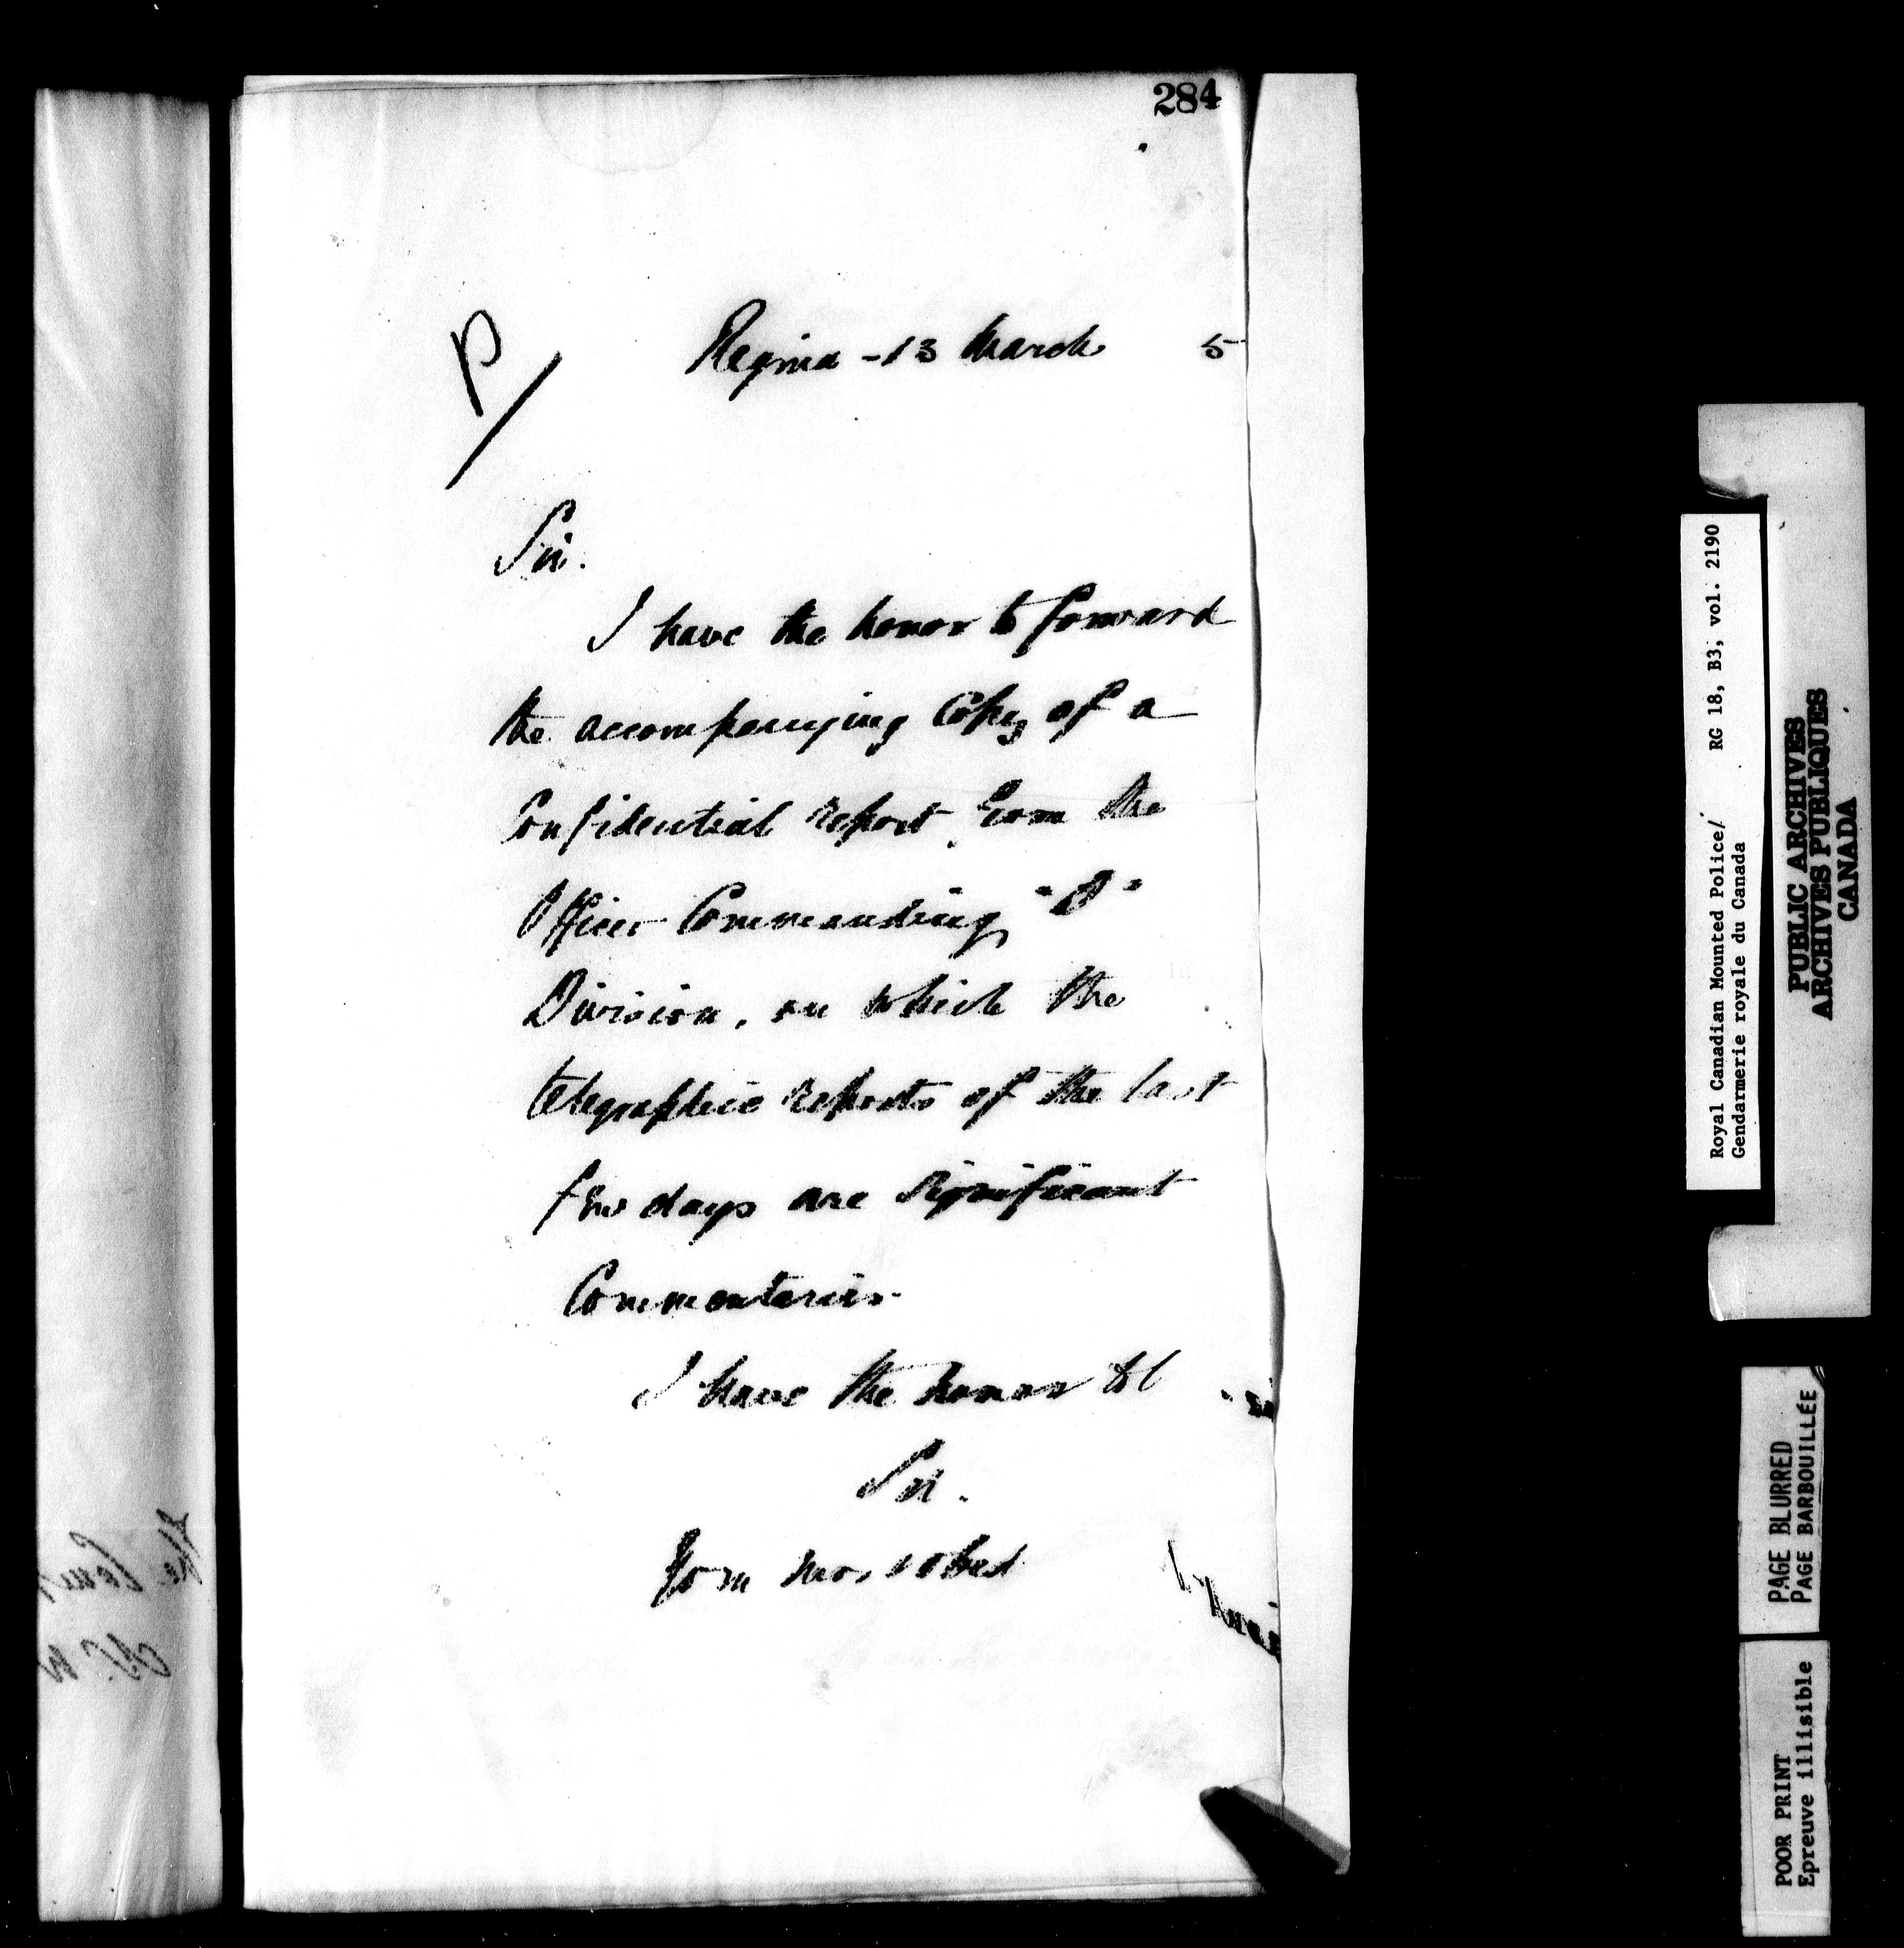 284
P/
Regina - 13 March 5
Sir.
I have the honor to forward
the accompanying Copy of a
Confidential report from the
Officer Commanding "D"
Division, on which the
telegraphic reports of the last
few days are significant
Commentaries.
I have the honor
Sir.
Your mos obed
Royal Canadian Mounted Police/ RG 18, B3, vol. 2190
Gendarmerie royale du Canada
PUBLIC ARCHIVES
ARCHIVES PUBLIQUES
CANADA
PAGE BLURRED
PAGE BARBOUILLÉE
POOR PRINT
Epreuve illisible